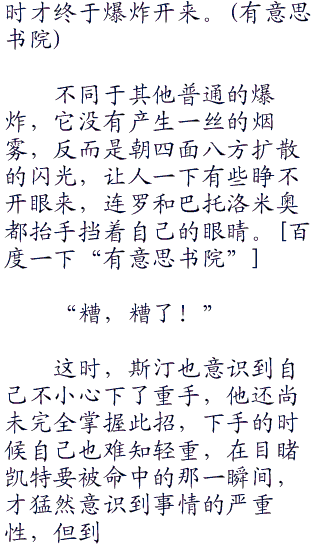 时才终于爆炸开来。(有意思
书院)
不同于其他普通的爆
炸，它没有产生一丝的烟
雾，反而是朝四面八方扩散
的闪光，让人一下有些睁不
开眼来，连罗和巴托洛米奥
都抬手挡着自己的眼睛。[百
度一下“有意思书院”]
“糟，糟了！”
这时，斯汀也意识到自
己不小心下了重手，他还尚
未完全掌握此招，下手的时
候自己也难知轻重，在目睹
凯特要被命中的那一瞬间，
才猛然意识到事情的严重
性，但到